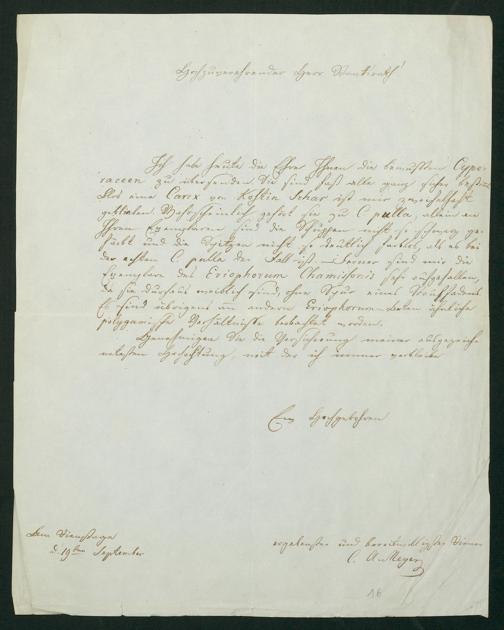 Hochzuverehrender Herr Staatsrath!
Ich habe heute die Ehre Ihnen die bewußten Cype-
raceen zu übersenden. Sie sind fast alle ganz sicher bestimmt
Blos eine Carex von Kostin Schar ist mir zweifelhaft
geblieben. Wahrscheinlich gehört sie zu C. pulla, allein an
Ihren Exemplaren sind die Schuppen nicht so schwarz ge-
färbt und die Spitzen nicht so deutlich, als es bei
der ächten C. pulla der Fall ist. Ferner sind mir die
Exemplare des Eriophorum Chamissonis sehr aufgefallen,
da sie durchaus weiblich sind ohne Spur eines Staubfadens.
Es sind übrigens an anderen Eriophorum ähnliche
polygamische Verhältnisse beobachtet worden.
Genehmigen Sie die Versicherung meiner ausgezeich-
netesten Hochachtung, mit der ich immer verbleibe
Ew Hochgebohren
Dienstags
d. 19ten September
ergebenster und bereitwilligster Diener
C. A. Meyer
16